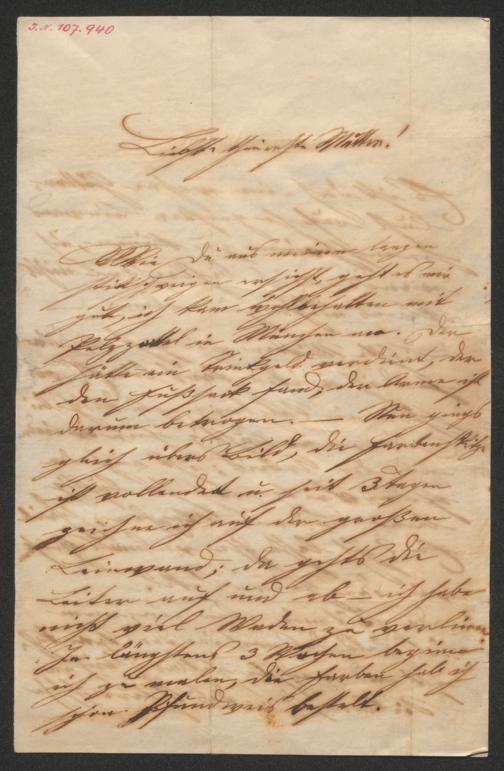 J.N. 107.940
Liebste theuerste Mutter!
Wie Du aus meinem langen
Stillschweigen ersiehst, geht es mir
gut, ich kam wohlbehalten mit
in München an. Der
hätte ein Trinkgeld verdient, der
den Fußsack fand, der Arme ist
darum betrogen. — Nun gings
gleich übers Bild, die Farbenskitze
ist vollendet u. seit 3 Tagen
zeichne ich auf der großen
Leinwand; da gehts die
Leiter auf und ab — ich habe
nicht viel Waden zu verlieren
In längstens 3 Wochen beginne
ich zu malen, die Farben hab ich
schon Pfundweis bestellt.